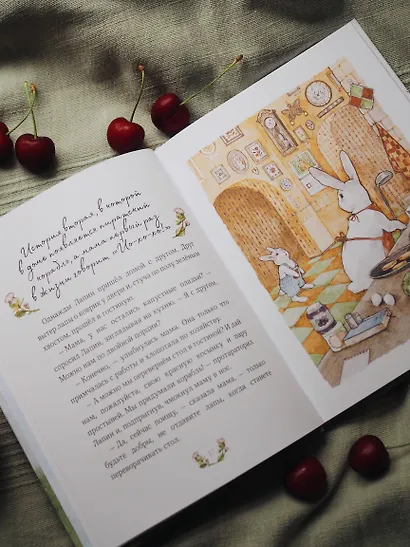 История вторая, в которой
в доме появляется пиратский
корабль, а мама первый раз
в жизни говорит «Йо-хо-хо!»
Однажды Лапин пришёл домой с другом. Друг
вытер лапы о коврик у двери и, стуча по полу зелёным
хвостом, прошёл в гостиную.
– Мама, у нас остались капустные оладьи? –
спросил Лапин, заглядывая на кухню. – Я с другом.
Можно нам по двойной порции?
– Конечно, – улыбнулась мама. Она только что
примчалась с работы и хлопотала по хозяйству.
– А можно мы перевернём стол в гостиной? И дай
нам, пожалуйста, свою красную косынку и пару
простыней. Мы придумали корабль! – протараторил
Лапин и, подпрыгнув, чмокнул маму в нос.
– Да, сейчас поищу, – сказала мама, – только
будьте добры, не отдавите лапы, когда станете
переворачивать стол.